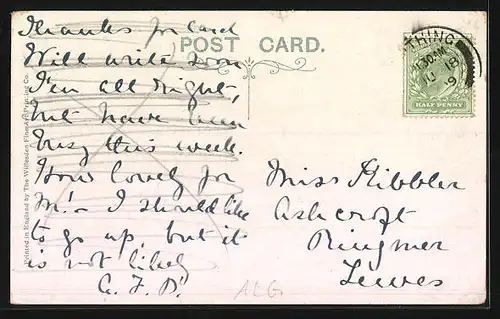 Thanks for card
Will write soon
I'm all right,
but have been
busy this week.
How lovely for
M! - I should like
to go up, but it
is not likely
POST CARD.
Printed in England by The Willesden Fine Art Printing Co.
THING
HALF PENNY
Miss Kibbler
Ashcroft
Ringmer
Lewes
ALG